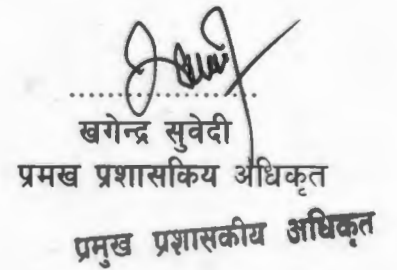 ....................
खगेन्द्र सुवेदी
प्रमख प्रशासकिय अधिकृत
प्रमुख प्रशासकीय अधिकृत